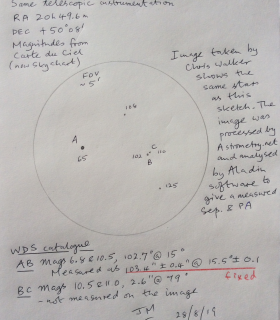 Same telescopic instrumentation
RA 20h 49.6m
DEC +50°08'
Magnitudes from
Carte du Ciel
(now skychart)
FOV
~ 5'
Image taken by
Chris Walker
shows the
same stars
as this
sketch. The
image was
processed by
Astrometry.net
and analysed
by Aladin
software to
give a measured
sep. & PA
A
65
C
B
125
WDS catalogue
AB Mags 6.8 & 10.5, 102.7° @ 15"
Measured as 103.4° ± 0.4° @ 15.5" ± 0.1
fixed
BC Mags 10.5 & 11.0, 2.6" @ 49°
- not measured on the image
JM
28/8/19